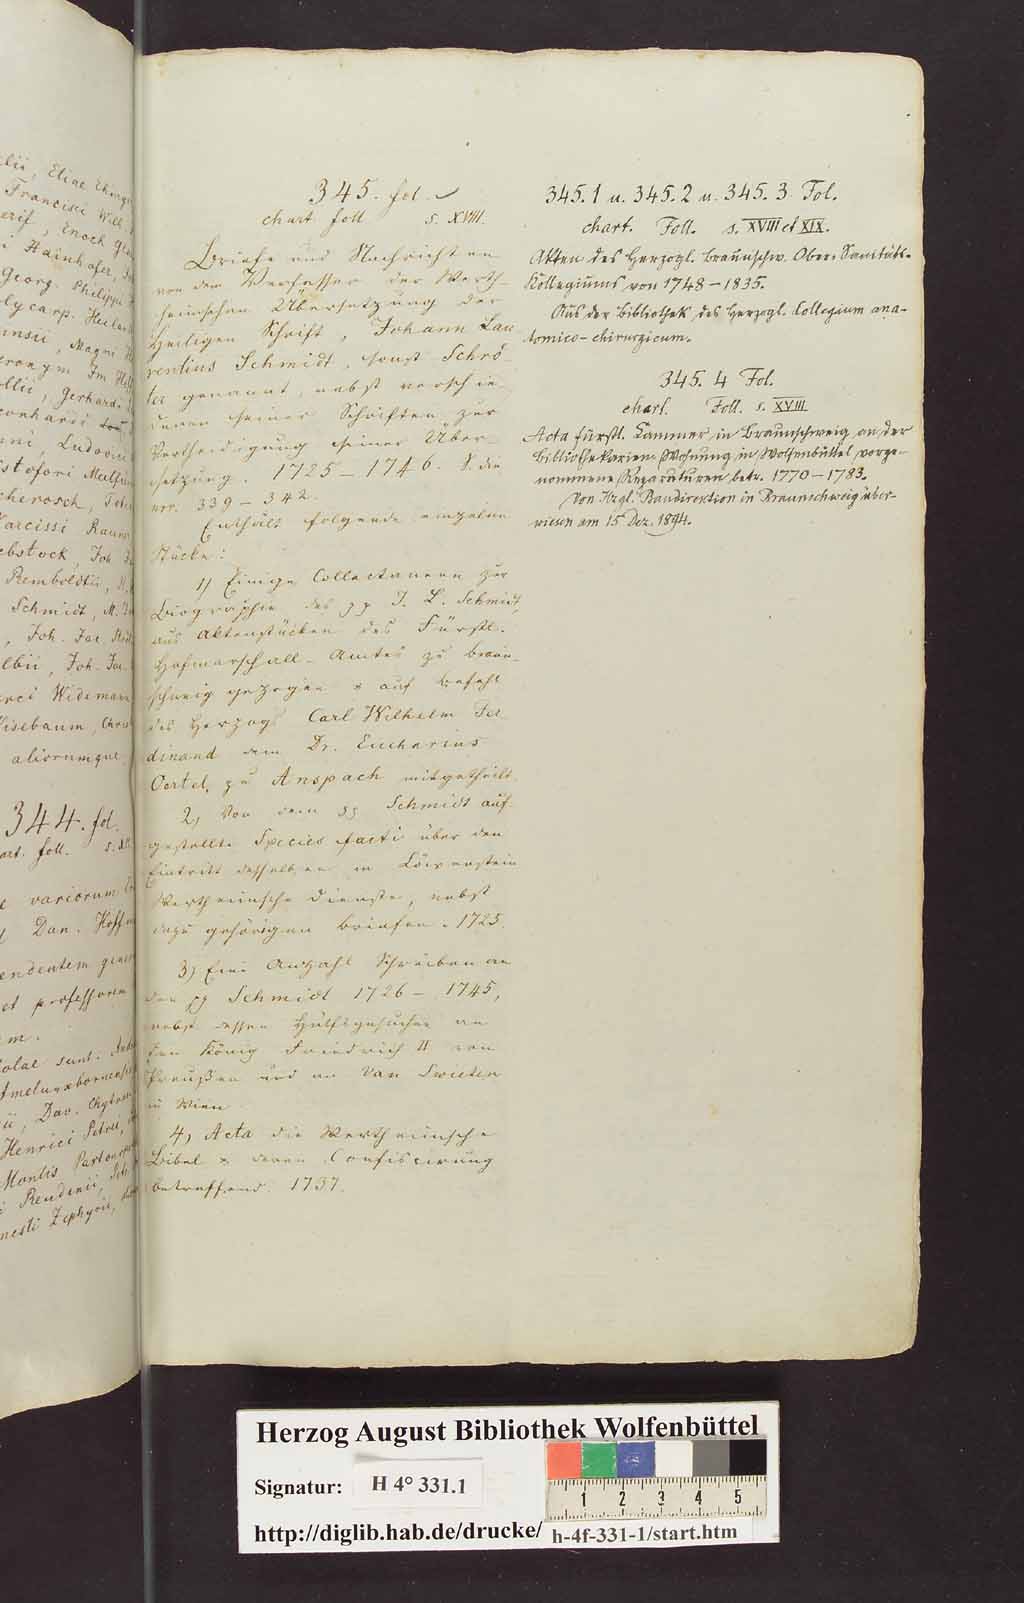 lii, Eliae Ehinge
Francisci Will
Enoch
i Hainhofer,
Georg. Philippi
lycarp. Heiland
Magni
eronym Im Hoff
ollii, Gerhard.
eonhardi
nni, Ludovici
istofori
cherosch,
Narcissi Rauner
ebstock, Joh
Remboldtii,
Schmidt, M.
, Joh. Jac.
lbii, Joh. Jac.
rci Wideman
isebaum, Chris
aliorumque
344. fol.
art. foll. s.
e variorum
Dan. Hoff
endentem gener
et professorem
m.
olae sunt.
Amelunxbornens
ii, Dav. Chytraei
Henrici Petrei,
Montis
Reudenii,
nesti Zephyrii,
345. fol.
chart foll s. XVIII.
Briefe und Nachrichten
von dem Verfasser der Werth-
heimschen Übersetzung der
Heiligen Schrift, Johann Lau
rentius Schmidt, sonst Schrö-
ter genannt, nebst verschie
denen seiner Schriften zur
Vertheidigung seiner Über-
setzung. 1725 – 1746. S. die
nrr. 339 – 342.
Enthält folgende einzelne
Stücke:
1) Einige Collectaneen zur
Biographie des pp J. L. Schmidt,
aus Aktenstücken des Fürstl.
Hofmarschall-Amtes zu Braun-
schweig gezogen & auf Befehl
des Herzogs Carl Wilhelm Fer
dinand dem Dr. Eucharius
Oertel, zu Anspach mitgetheilt.
2, Von dem pp Schmidt auf-
gestellte Species facti über den
Eintritt desselben in Löwenstein
Wertheimsche Dienste, nebst
dazu gehörigen Briefen. 1725.
3) Eine Anzahl Schreiben an
den pp Schmidt 1726 – 1745,
nebst dessen Hülfsgesuchen an
den König Friedrich II von
Preußen und an Van Swieten
in Wien.
4, Acta die Wertheimsche
Bibel & deren Confiscirung
betreffend. 1737.
345.1 u. 345.2 u. 345.3 Fol.
chart. Foll. s. XVIII et XIX.
Akten des Herzogl. Braunschw. Ober-Sanitäts-
Kollegiums von 1748 – 1835.
Aus der Bibliothek des Herzogl. Collegium ana-
tomico-chirurgicum.
345. 4 Fol.
chart. Foll. s. XVIII
Acta Fürstl. Kammer in Braunschweig an der
Bibliothekarien-Wohnung in Wolfenbüttel vorge-
nommene Reparaturen betr. 1770 – 1783.
Von Hrzgl. Baudirektion in Braunschweig über-
wiesen am 15 Dez. 1894.
Herzog August Bibliothek Wolfenbüttel
Signatur: H 4° 331.1
1 2 3 4 5
http://diglib.hab.de/drucke/ h-4f-331-1/start.htm